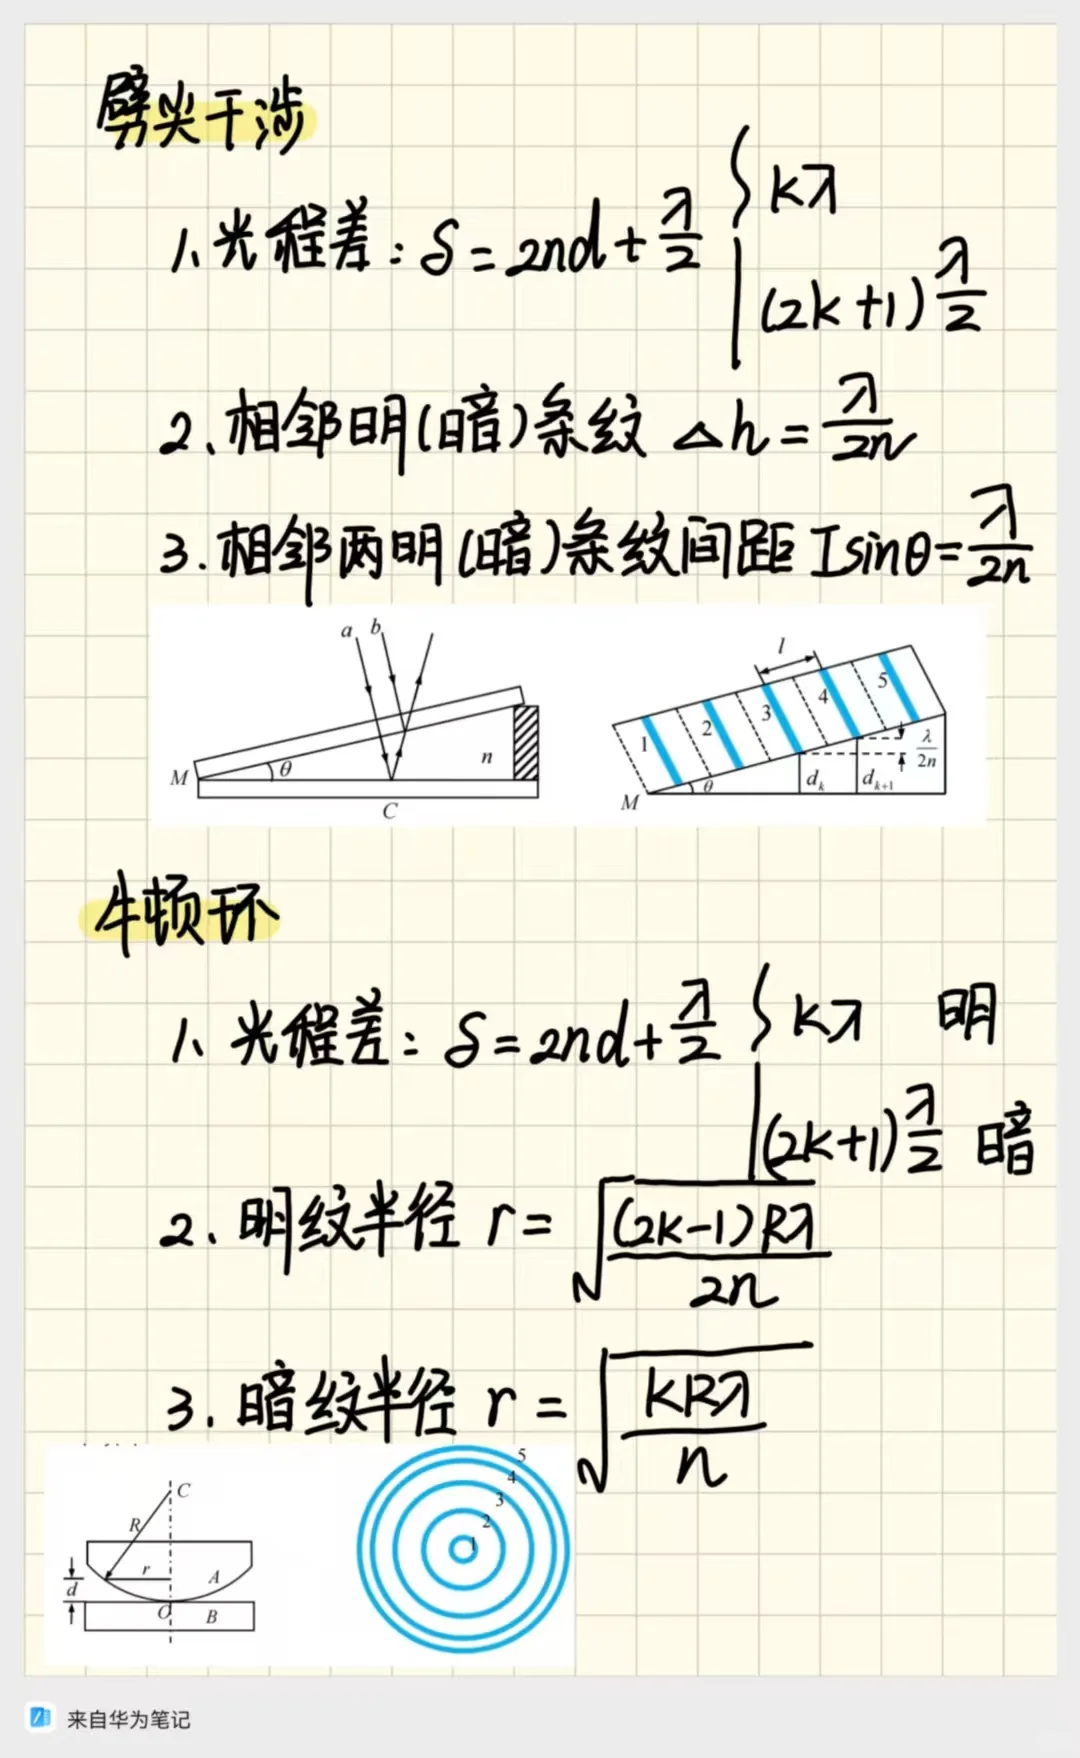 劈尖干涉
1、光程差：δ=2nd+λ/2 { kλ
(2k+1)λ/2
2、相邻明(暗)条纹 △h=λ/2n
3.相邻两明(暗)条纹间距 Isinθ=λ/2n
a b
M θ n
C
l
1 2 3 4 5
λ/2n
M θ d_k d_{k+1}
牛顿环
1、光程差：δ=2nd+λ/2 { kλ 明
(2k+1)λ/2 暗
2、明纹半径 r=√((2k-1)Rλ/2n)
3.暗纹半径 r=√(kRλ/n)
C
R
r A
d
O B
5
4
3
2
1
来自华为笔记